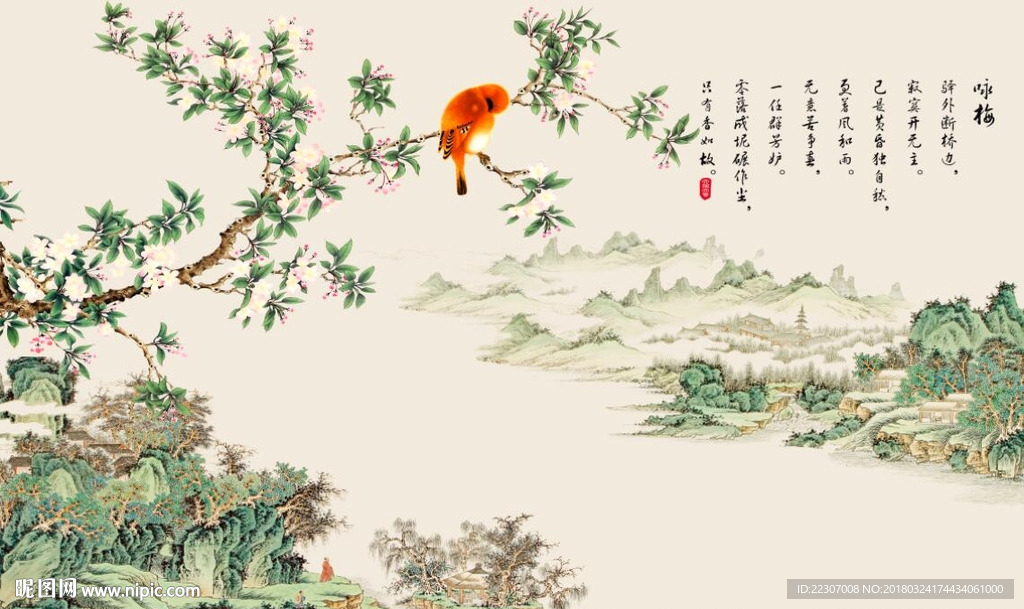 咏梅
驿外断桥边，
寂寞开无主。
已是黄昏独自愁，
更著风和雨。
无意苦争春，
一任群芳妒。
零落成坭碾作尘，
只有香如故。
昵图网 www.nipic.com
ID:22307008 NO:20180324174434061000